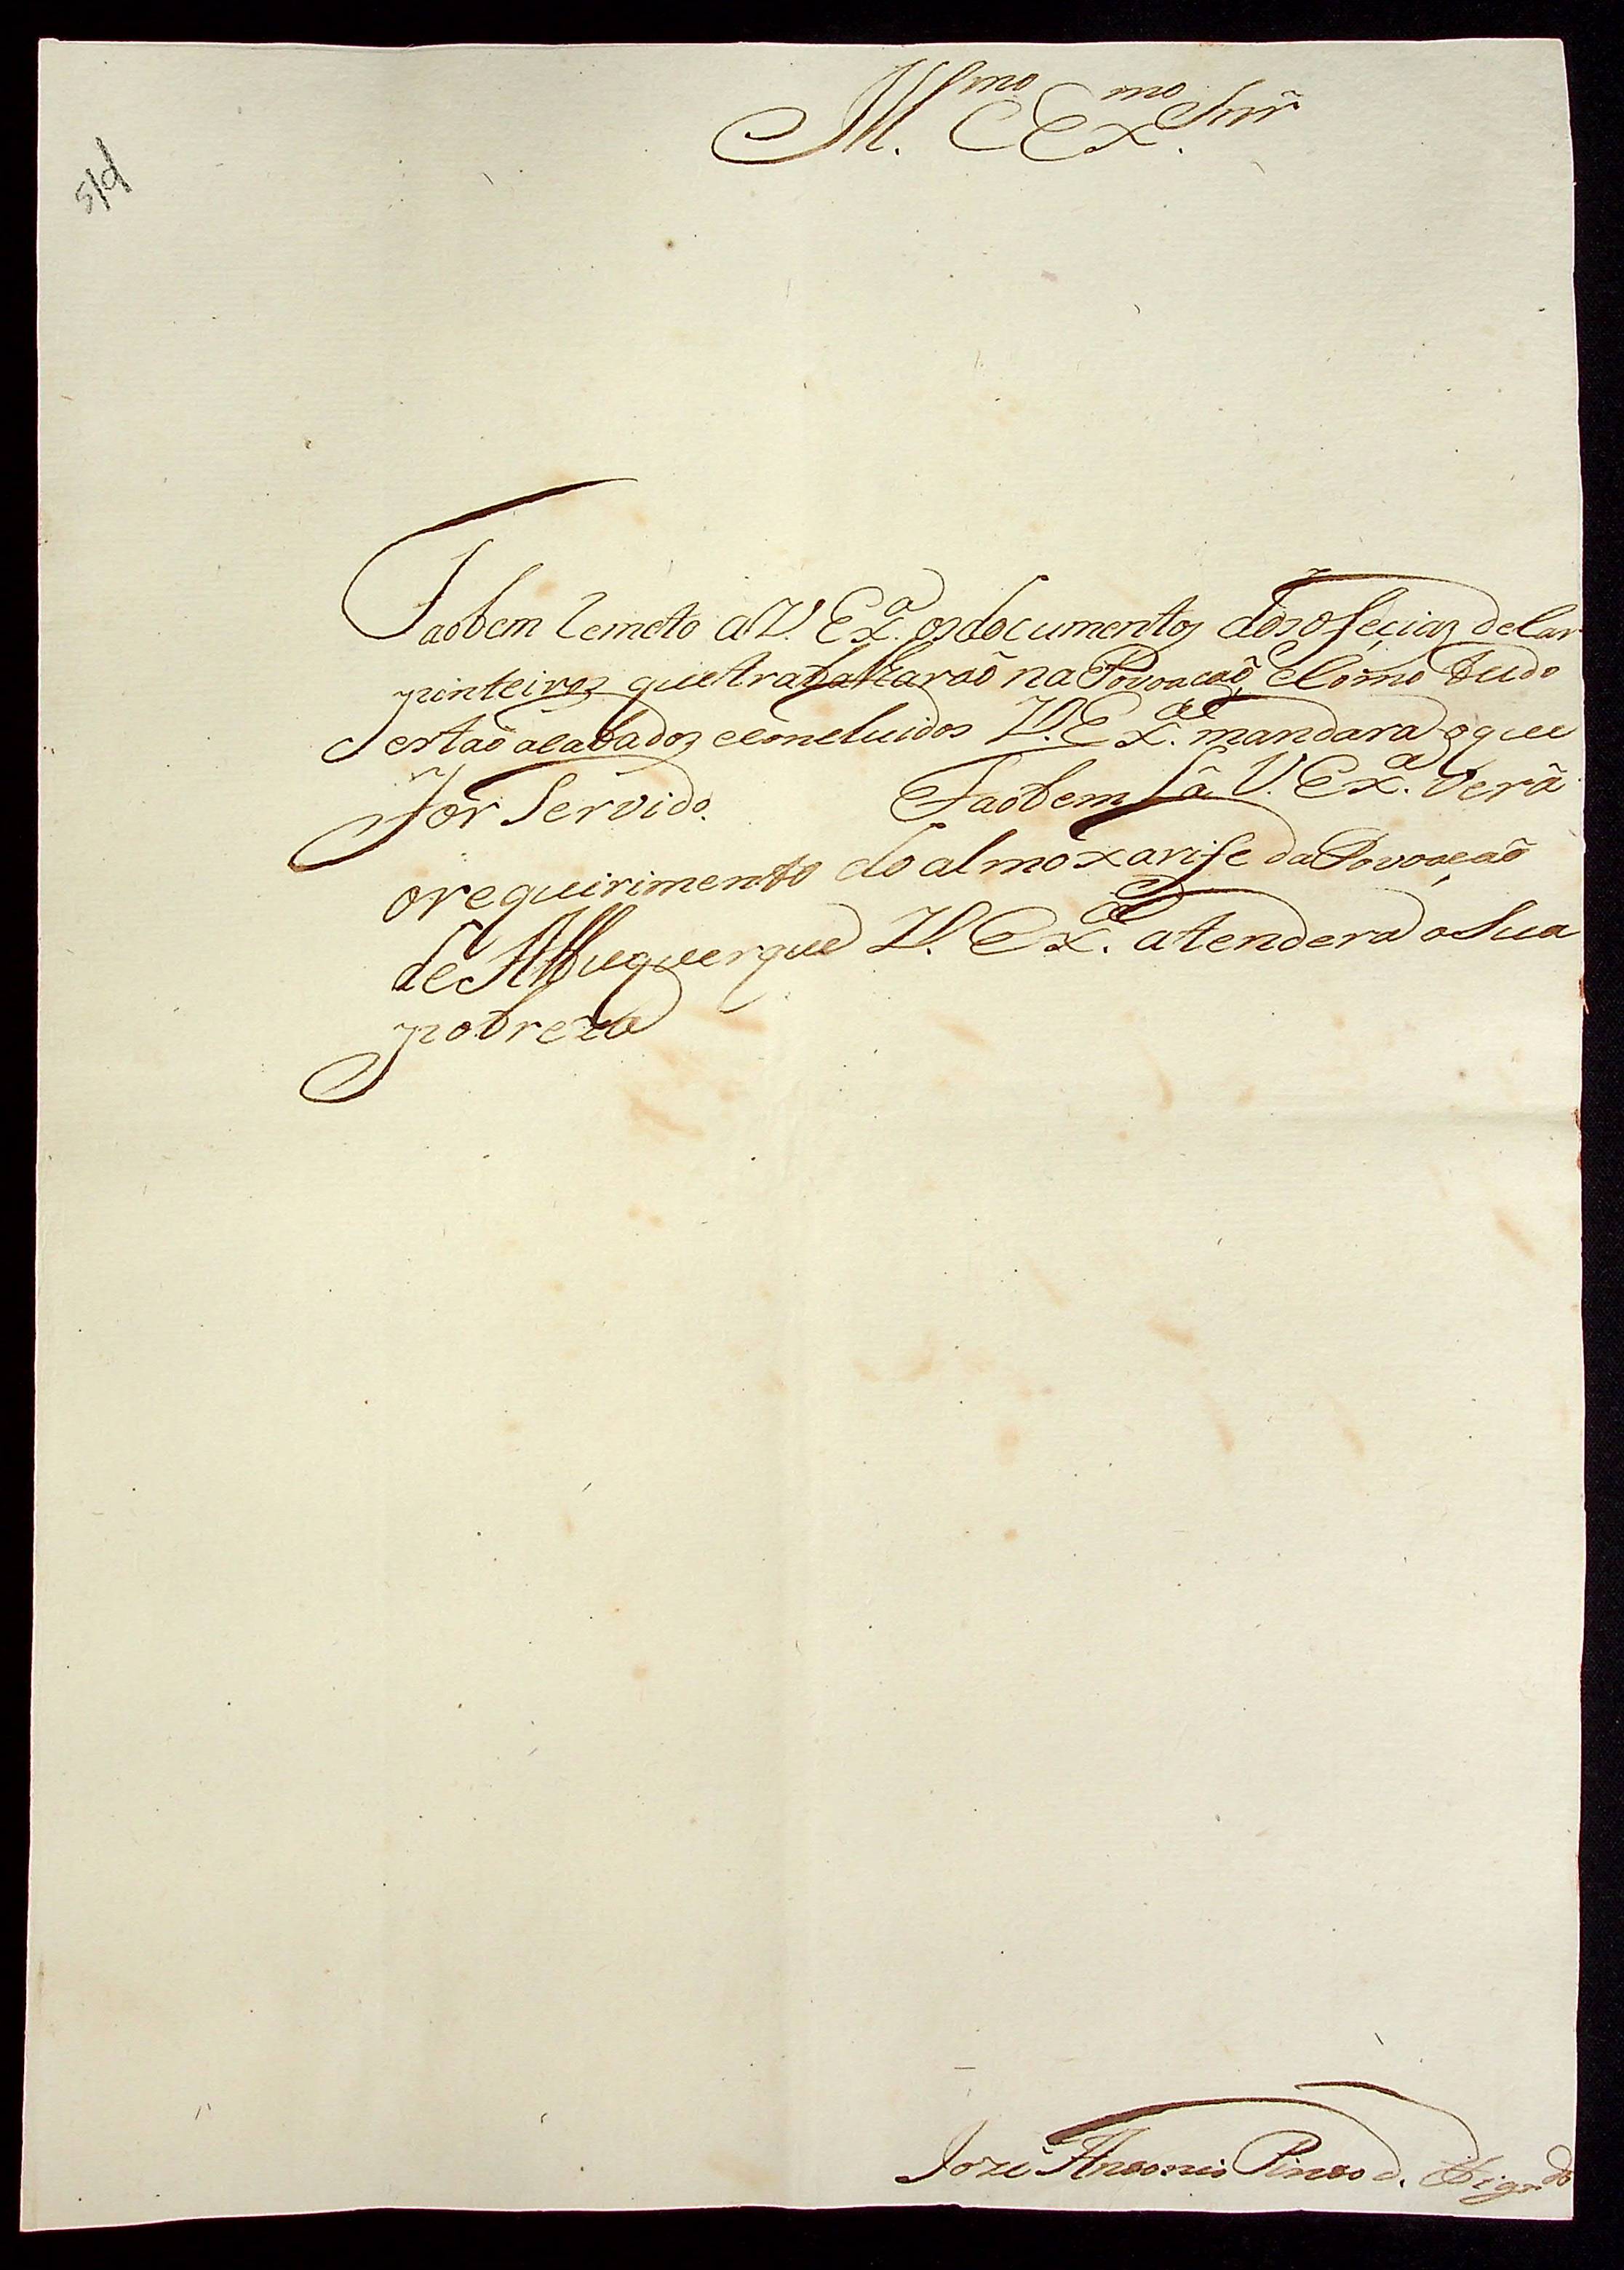 Ill.mo e Ex.mo Snr̃
s/d
Taobem Remeto a V. Ex.a os documentos dos ofeçiaz de Car
pinteiroz que trabalharaõ na Povoacaõ, e Como tudo
estaõ acabadoz e concluidos V. Ex.a mandara o que
for Servido. Taobem lâ V. Ex.a verâ
o requirimento do almoxarife da Povoaçaõ
de Albuquerque V. Ex.a atendera a Sua
pobreza
Joze Antonio Pinto d. Figr.do